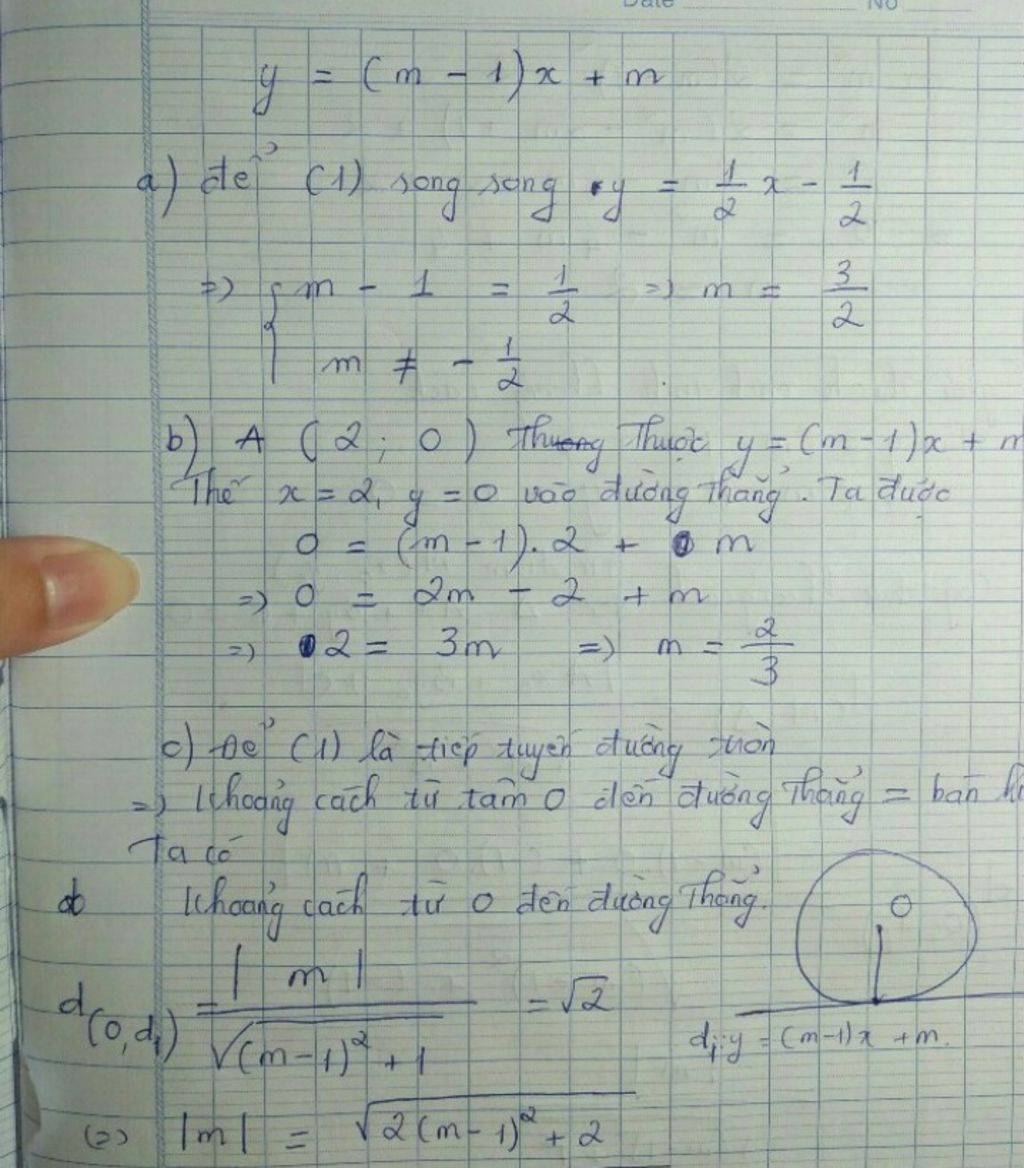 Date No
y = (m - 1)x + m
a) để (1) song song y = 1/2 x - 1/2
=> { m - 1 = 1/2 => m = 3/2
m ≠ - 1/2
b) A (2; 0) Thuộc y = (m - 1)x + m
Thế x = 2, y = 0 vào đường thẳng. Ta được
0 = (m - 1). 2 + m
=> 0 = 2m - 2 + m
=> 2 = 3m => m = 2/3
c) Để (1) là tiếp tuyến đường tròn
=> Khoảng cách từ tâm O đến đường thẳng = bán
Ta có
Khoảng cách từ O đến đường thẳng.
O
d(O, d₁) = |m| / √((m-1)² + 1) = √2
d₁: y = (m-1)x + m.
(=) |m| = √(2(m-1)² + 2)